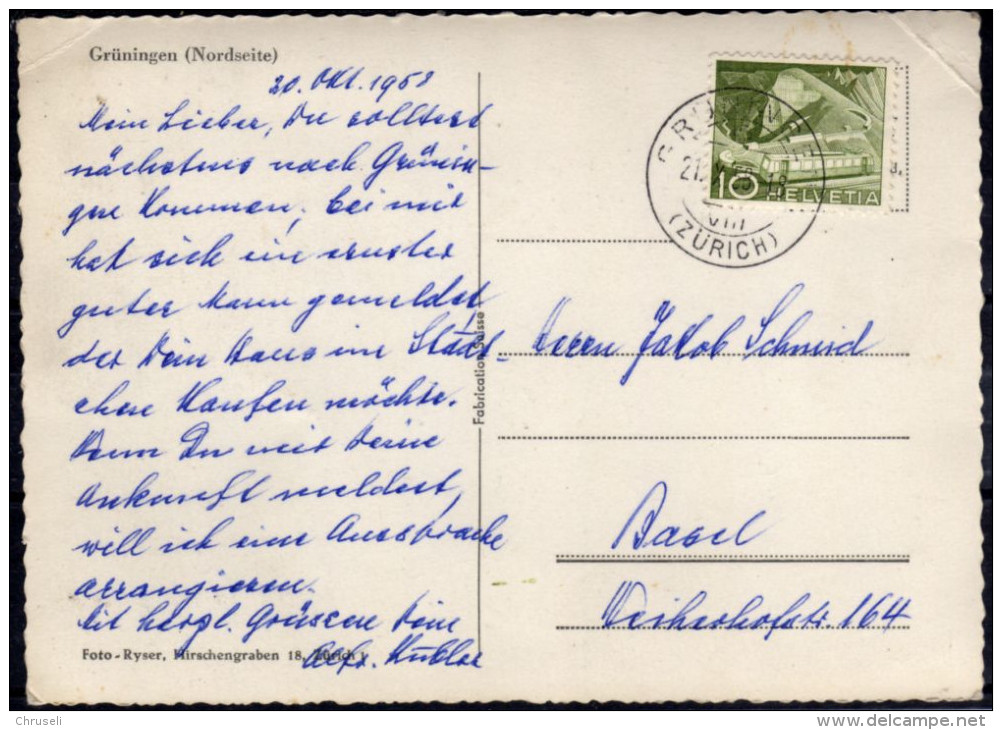 Grüningen (Nordseite)
20. Okt. 1958
Mein Lieber, Du solltest
nächstens nach Grünin-
gen kommen, bei mir
hat sich ein ernster
guter Mann gemeldet
der Dein Haus im Städt-
chen kaufen möchte.
Wenn Du mir Deine
Ankunft meldest,
will ich eine Aussprache
arrangieren.
Mit herzl. Grüssen Dein
Foto-Ryser, Hirschengraben 18, Zürich 1
Fabrication Suisse
10 HELVETIA
(ZÜRICH)
Herrn Jakob Schmid
Basel
Weiherhofstr. 164
Chruseli
delcampe.net